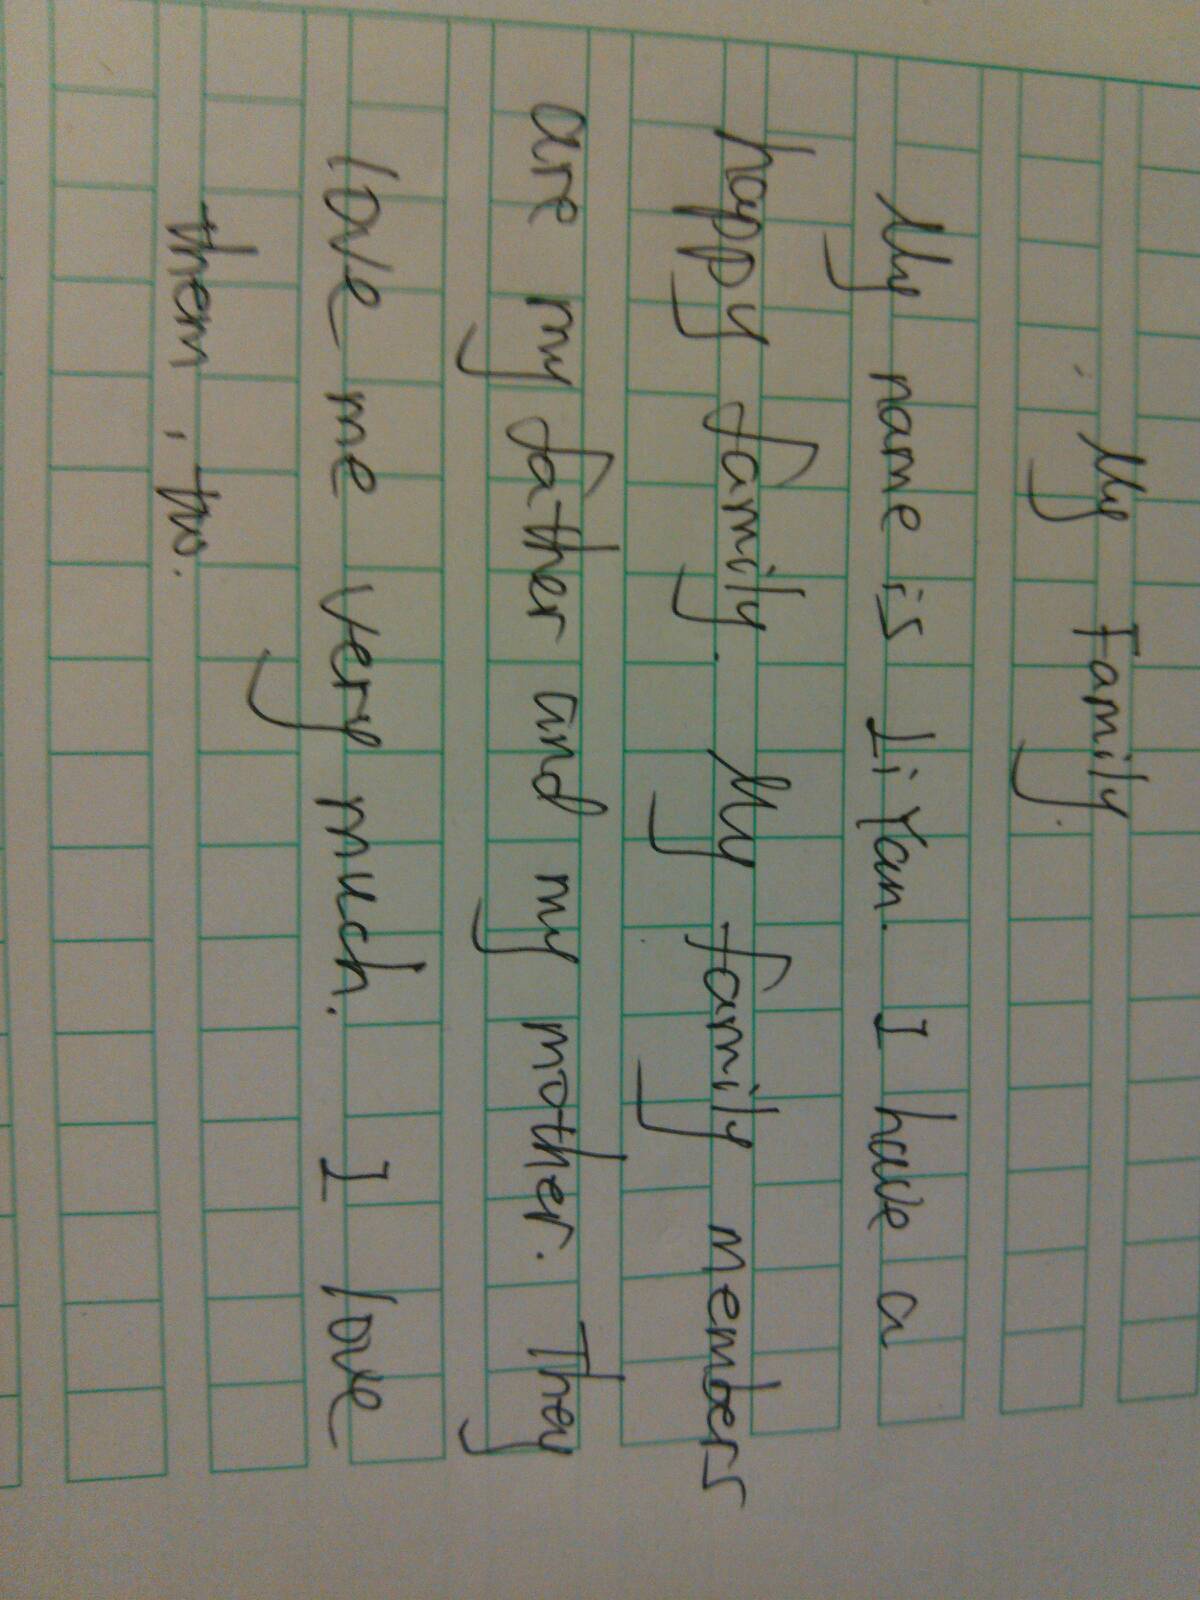 My Family.
My name is Li Yan. I have a
happy family. My family members
are my father and my mother. They
love me very much. I love
them, too.